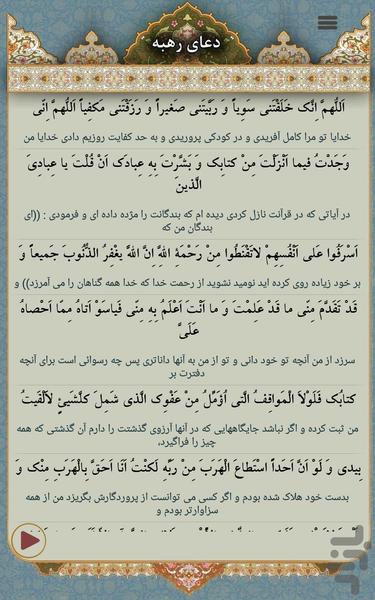 دعای رهبه
اَللّهمَّ اِنَّک خَلَقْتَنی سَوِیاً وَ رَبَّیتَنی صَغیراً وَ رَزَقْتَنی مَکفِیاً اَللّهُمَّ اِنّی
خدایا تو مرا کامل آفریدی و در کودکی پروریدی و به حد کفایت روزیم دادی خدایا من
وَجَدْتُ فیما اَنْزَلْتَ مِنْ کتابِک وَ بَشَّرْتَ بِهِ عِبادَک اَنْ قُلْتَ یا عِبادِی
الَّذینَ
در آیاتی که در قرآنت نازل کردی دیده ام که بندگانت را مژده داده ای و فرمودی : ((ای
بندگان من که
اَسْرَفُوا عَلی اَنْفُسِهِمْ لاتَقْنَطُوا مِنْ رَحْمَةِ اللّهِ اِنَّ اللّهَ یغْفِرُ الذُّنُوبَ جَمیعاً وَ
بر خود زیاده روی کرده اید نومید نشوید از رحمت خدا که خدا همه گناهان را می آمرزد)) و
قَدْ تَقَدَّمَ مِنّی ما قَدْ عَلِمْتَ وَ ما اَنْتَ اَعْلَمُ بِهِ مِنّی فَیاسَوْ اَتاهُ مِمّا اَحْصاهُ
عَلَیَّ
سرزد از من آنچه تو خود دانی و تو از من به آنها داناتری پس چه رسوائی است برای آنچه
دفترت بر
کتابُک فَلَوْلاَ الْمَواقِفُ الَّتی اُؤَمِّلُ مِنْ عَفْوِک الَّذی شَمِلَ کلَّشَیئٍ لاَلْقَیتُ
من ثبت کرده و اگر نباشد جایگاههایی که در آنها آرزوی گذشتت را دارم آن گذشتی که همه
چیز را فراگیرد،
بِیدی وَ لَوْ اَنَّ اَحَداً اسْتَطاعَ الْهَرَبَ مِنْ رَبِّهِ لَکنْتُ اَنَا اَحَقَّ بِالْهَرَبِ مِنْک وَ
بدست خود هلاک شده بودم و اگر کسی می توانست از پروردگارش بگریزد من از همه
سزاوارتر بودم و
بازار